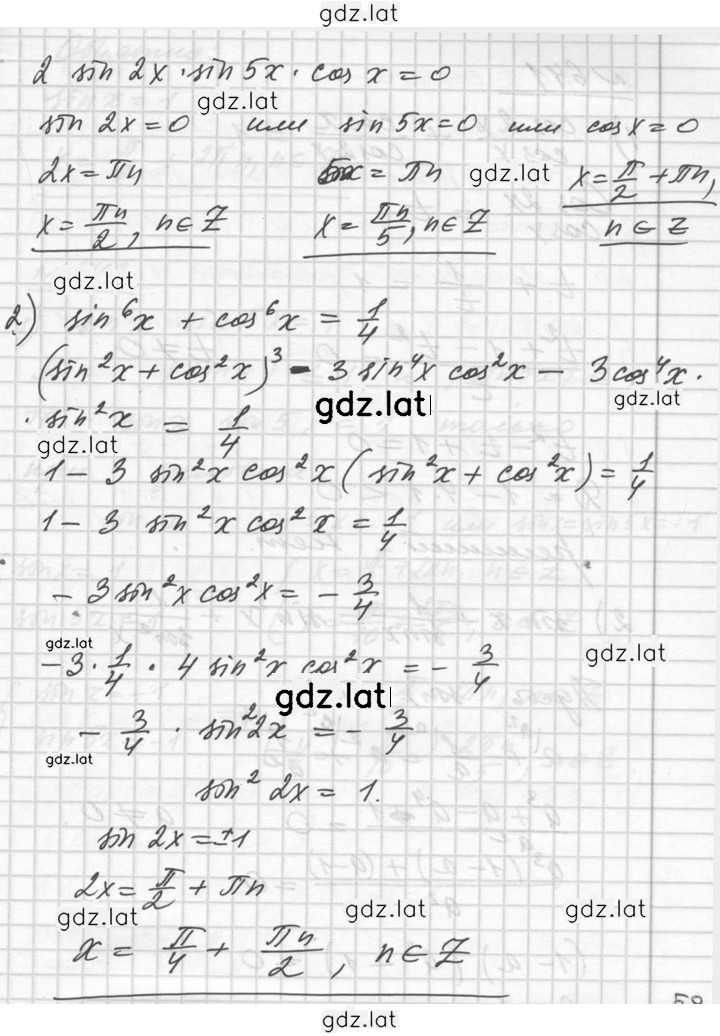 gdz.lat
2 sin 2x · sin 5x · cos x = 0
gdz.lat
sin 2x = 0 или sin 5x = 0 или cos x = 0
2x = πn 5x = πn gdz.lat x = π/2 + πn,
x = πn/2, n ∈ Z x = πn/5, n ∈ Z n ∈ Z
gdz.lat
2) sin⁶x + cos⁶x = 1/4
(sin²x + cos²x)³ - 3 sin⁴x cos²x - 3cos⁴x ·
gdz.lat gdz.lat
· sin²x = 1/4
gdz.lat
1 - 3 sin²x cos²x (sin²x + cos²x) = 1/4
1 - 3 sin²x cos²x = 1/4
- 3 sin²x cos²x = - 3/4
gdz.lat gdz.lat
-3 · 1/4 · 4 sin²x cos²x = - 3/4
gdz.lat
- 3/4 · sin²2x = - 3/4
gdz.lat
sin² 2x = 1.
sin 2x = ±1
2x = π/2 + πn
gdz.lat gdz.lat gdz.lat
x = π/4 + πn/2, n ∈ Z
gdz.lat